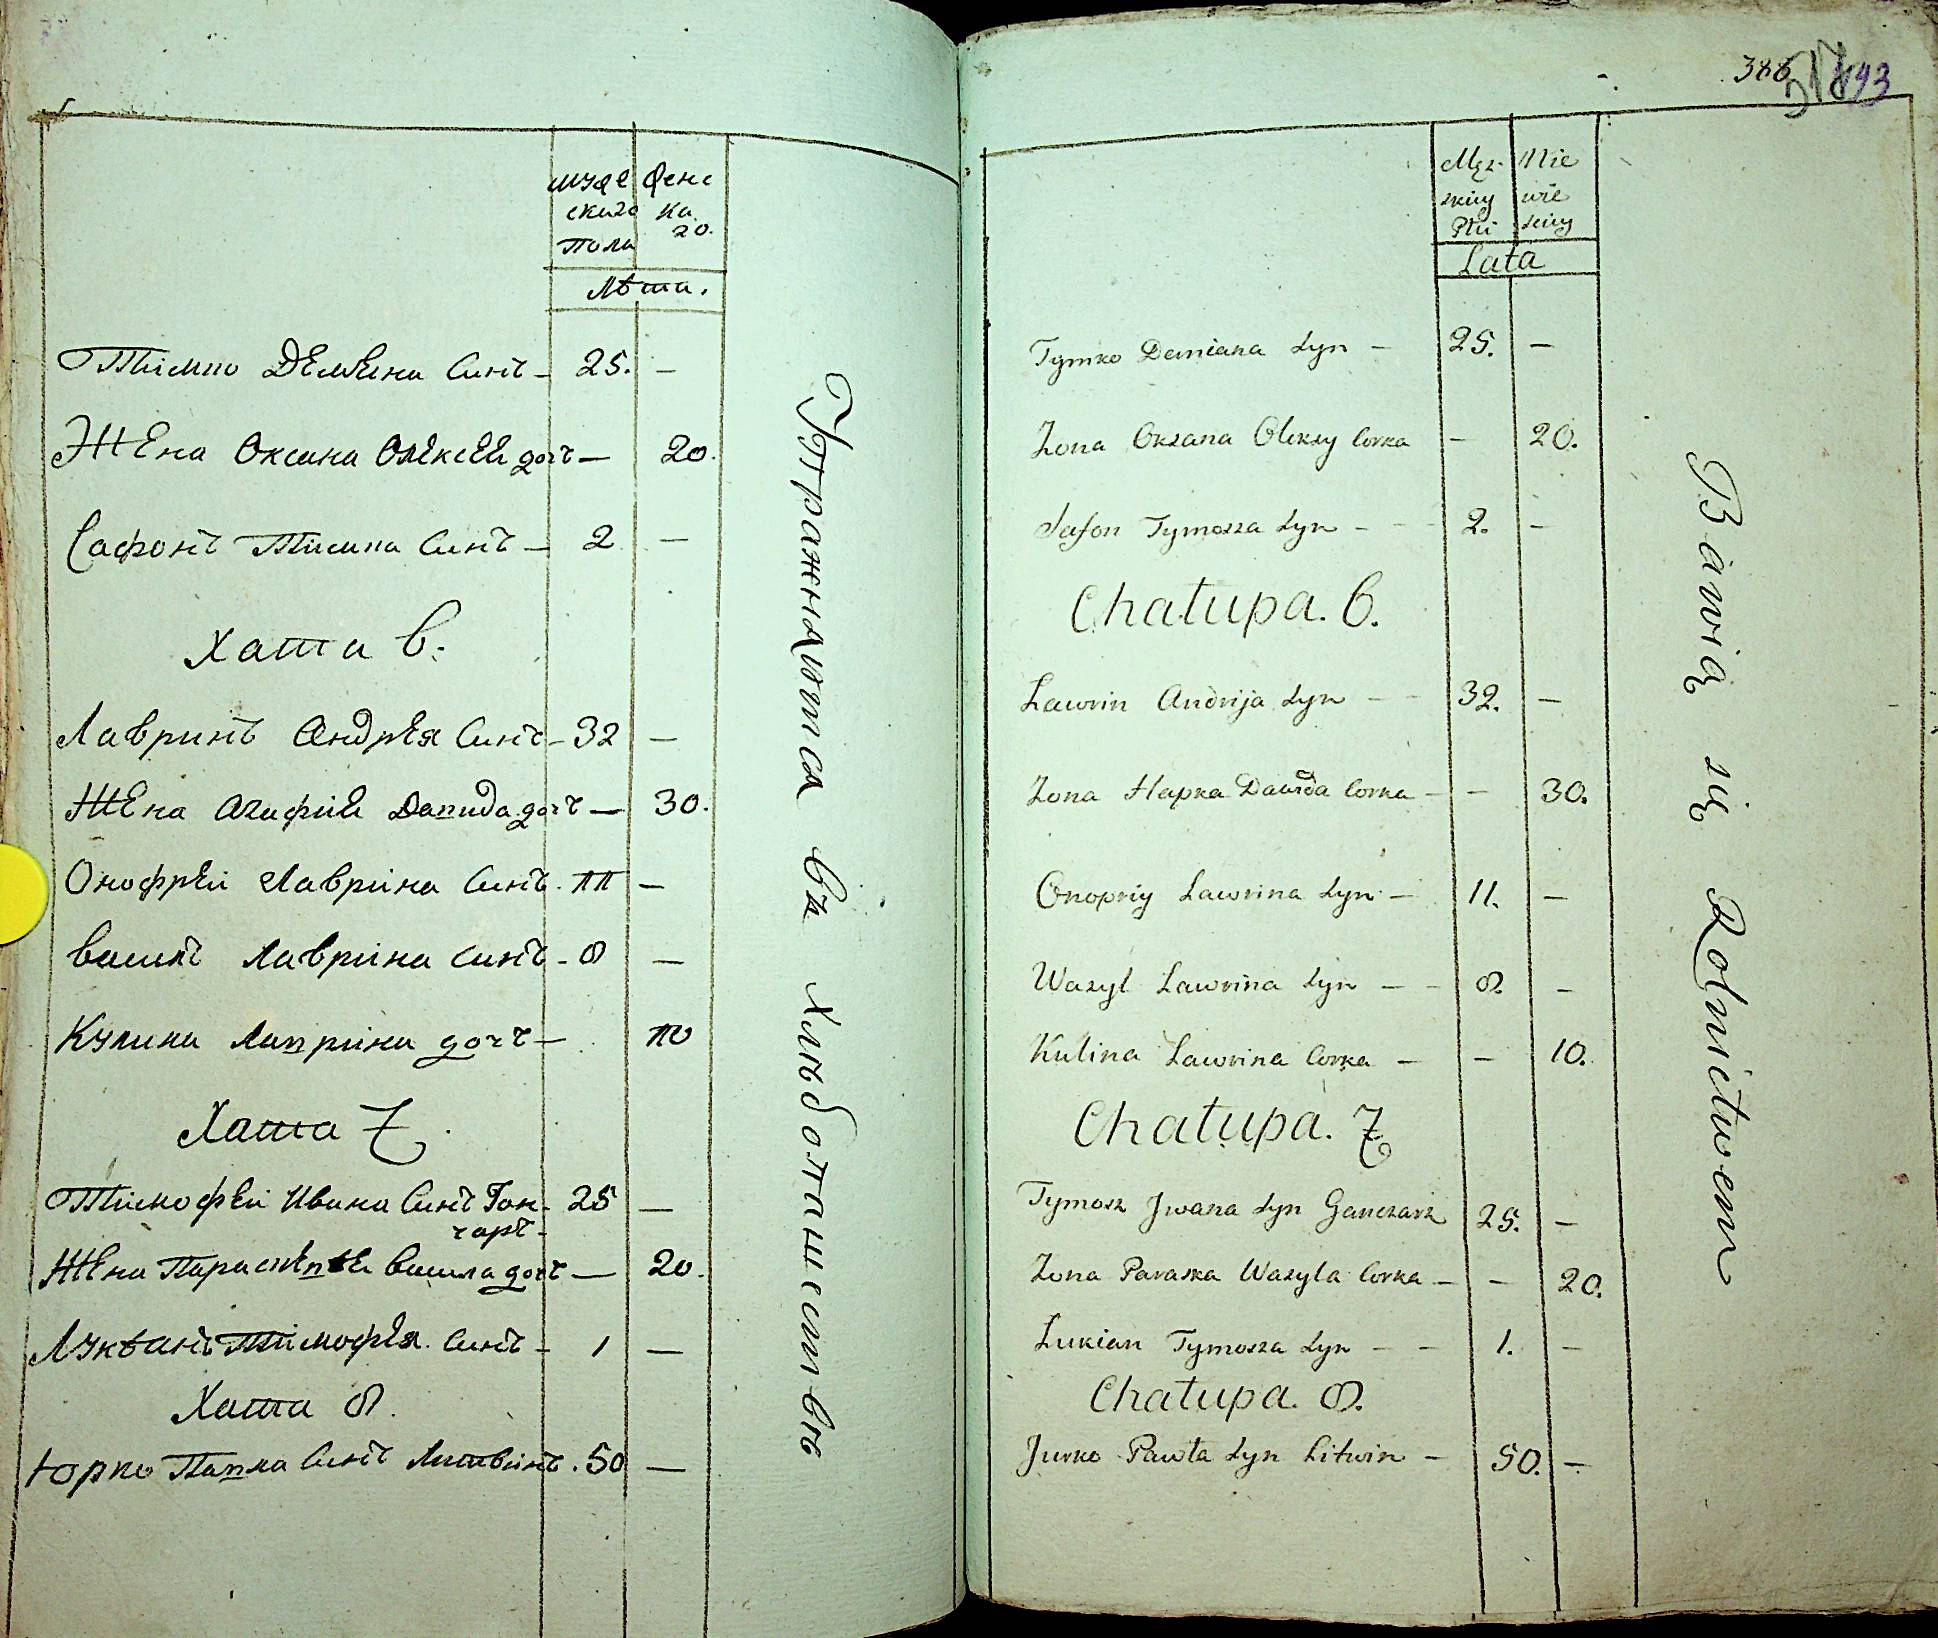 мужескаго Пола
Женскаго.
Лѣта.
Тімко Демяна Синъ - 25. -
Жена Оксана Олексѣй дочъ - 20.
Сафонъ Тімка Синъ - 2 -
Хата 6.
Лавринъ Андрея Синъ - 32 -
Жена Агафия Давида дочъ - 30.
Онофрей Лавріна Синъ. 11 -
Василъ Лавріна Синъ - 8 -
Кулина Лавріна дочъ - 10
Хата 7.
Тімофей Ивана Синъ Гон- 25 -
чаръ -
Жена Параскевея Васила дочъ - 20.
Лукѣанъ Тімофея Синъ - 1 -
Хата 8.
Юрко Павла Синъ Литвинъ. 50 -
Упражняются въ Хлѣбопашествѣ
388
Męzkiey Płci
Niewieściey
Lata
Tymko Demiana Syn - 25. -
Zona Oksana Oleksy Corka - 20.
Safon Tymosza Syn - - 2. -
Chałupa. 6.
Lawrin Andrija Syn - - 32. -
Zona Hapka Dawida Corka - - 30.
Onopriy Lawrina Syn - 11. -
Wasyl Lawrina Syn - - 8. -
Kulina Lawrina Corka - - 10.
Chałupa. 7
Tymosz Jwana Syn Ganczarz 25. -
Zona Paraska Wasyla Corka - - 20.
Lukian Tymosza Syn - - 1. -
Chałupa. 8.
Jurko Pawła Syn Litwin - 50. -
Bawią się Rolnictwem